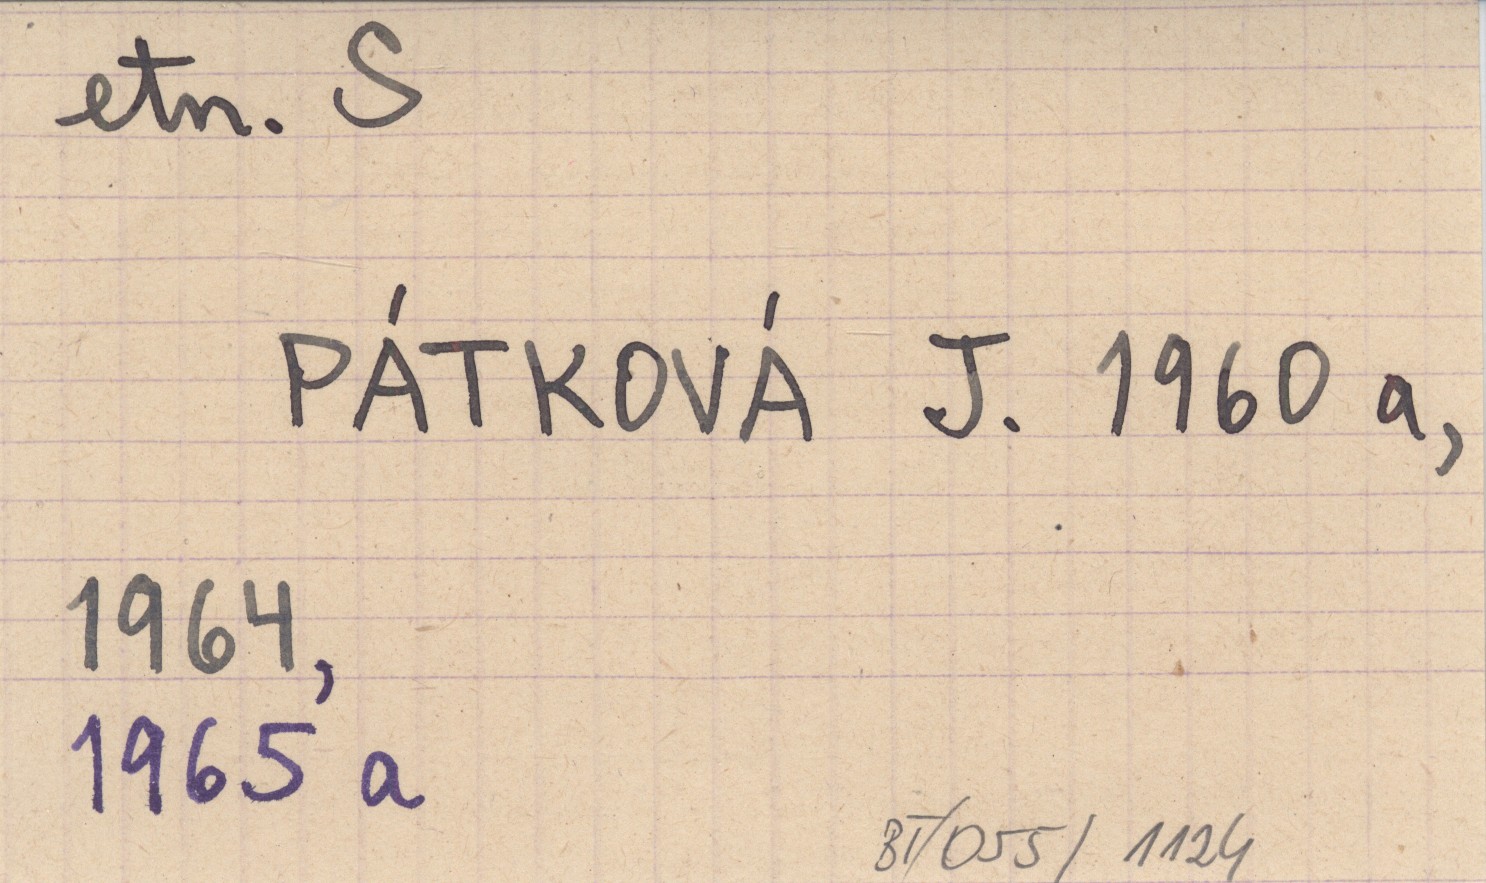 etn. S
PÁTKOVÁ J. 1960 a,
1964,
1965 a
BT/055/ 1124